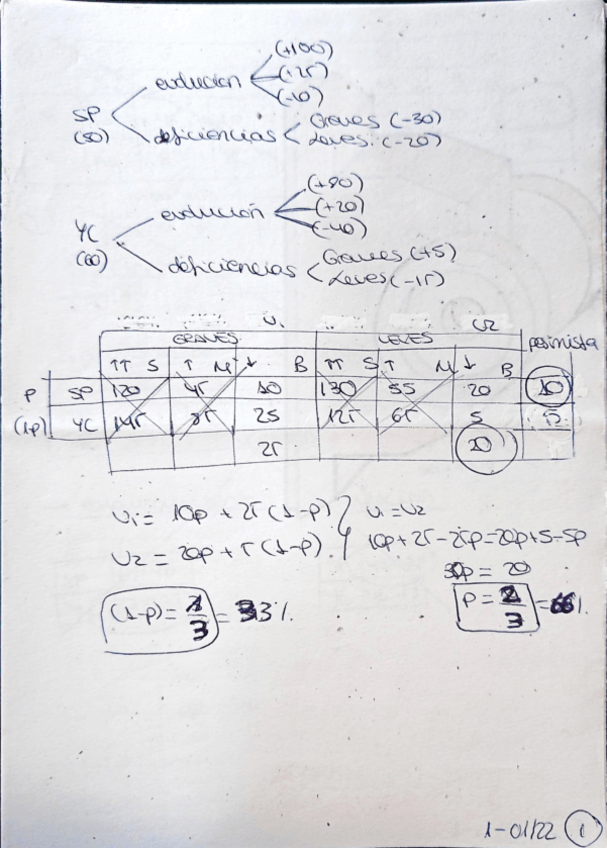 (+100)
evolución (+25)
(-10)
SP
(50)
deficiencias Graves (-30)
Leves: (-20)
(+80)
evolución (+20)
(-40)
YC
(60)
deficiencias Graves (+5)
Leves (-15)
U1 U2
GRAVES LEVES pesimista
↑↑ S ↑ M ↓ B ↑↑ S ↑ M ↓ B
P SP 120 45 10 130 55 20 10
(1-p) YC 145 25 125 65 5
25 20
U1 = 10p + 25(1-p) } U1 = U2
U2 = 20p + 5(1-p) 10p + 25 - 25p = 20p + 5 - 5p
30p = 20
(1-p) = 1/3 = 33%. P = 2/3 = 66%.
1-01/22 1